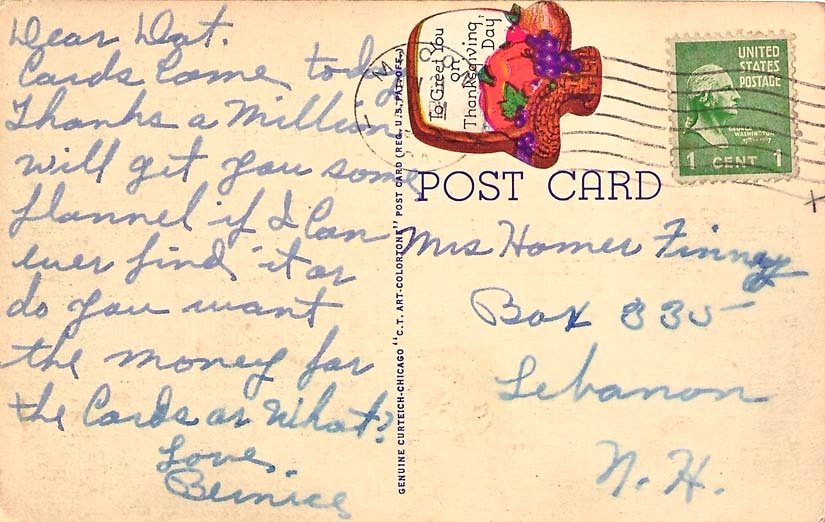 Dear Dot.
Cards Came today
Thanks a Million
will get you some
flannel if I Can
ever find it or
do you want
the money for
the Cards or What?
Love,
Bernice
GENUINE CURTEICH-CHICAGO "C.T. ART-COLORTONE" POST CARD (REG. U.S. PAT. OFF.)
To Greet You
on
Thanksgiving
Day
UNITED
STATES
POSTAGE
GEORGE
WASHINGTON
1 CENT 1
POST CARD
Mrs Homer Finney
Box 335
Lebanon
N. H.